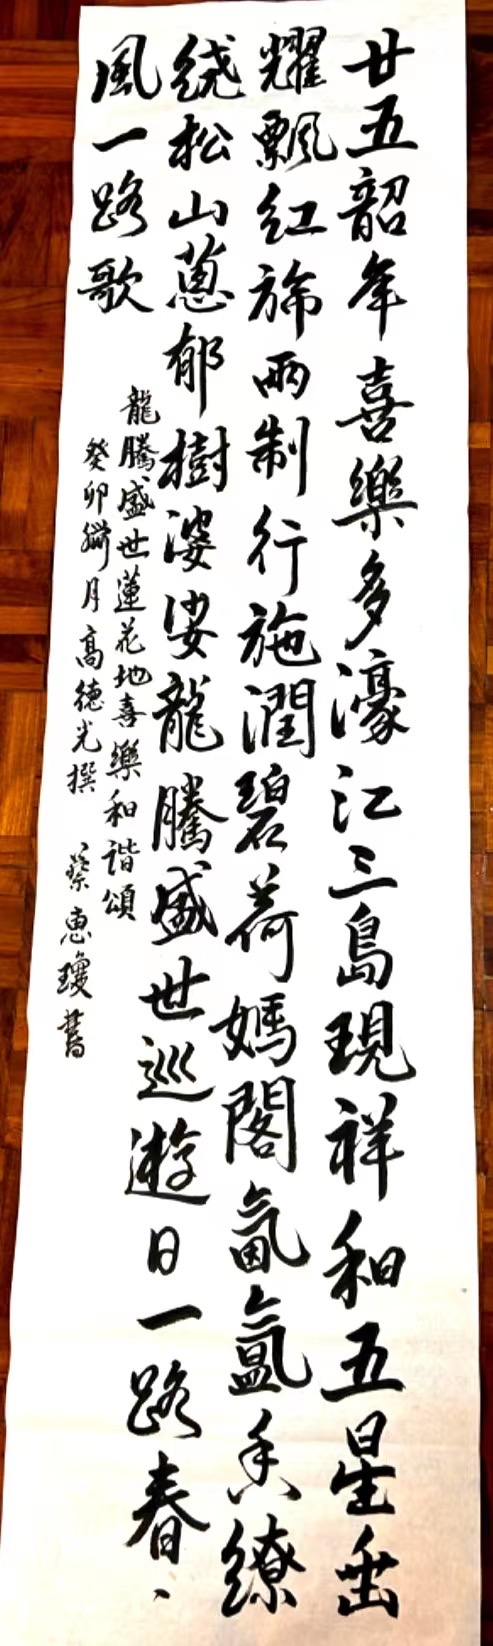 廿五韶年喜樂多濠江三島現祥和五星垂
耀飄紅旆兩制行施潤碧荷媽閣氤氳香繚
繞松山蔥郁樹婆娑龍騰盛世巡遊日一路春、
風一路歌
龍騰盛世蓮花地喜樂和諧頌
癸卯臘月高德光撰 蔡惠瓊書